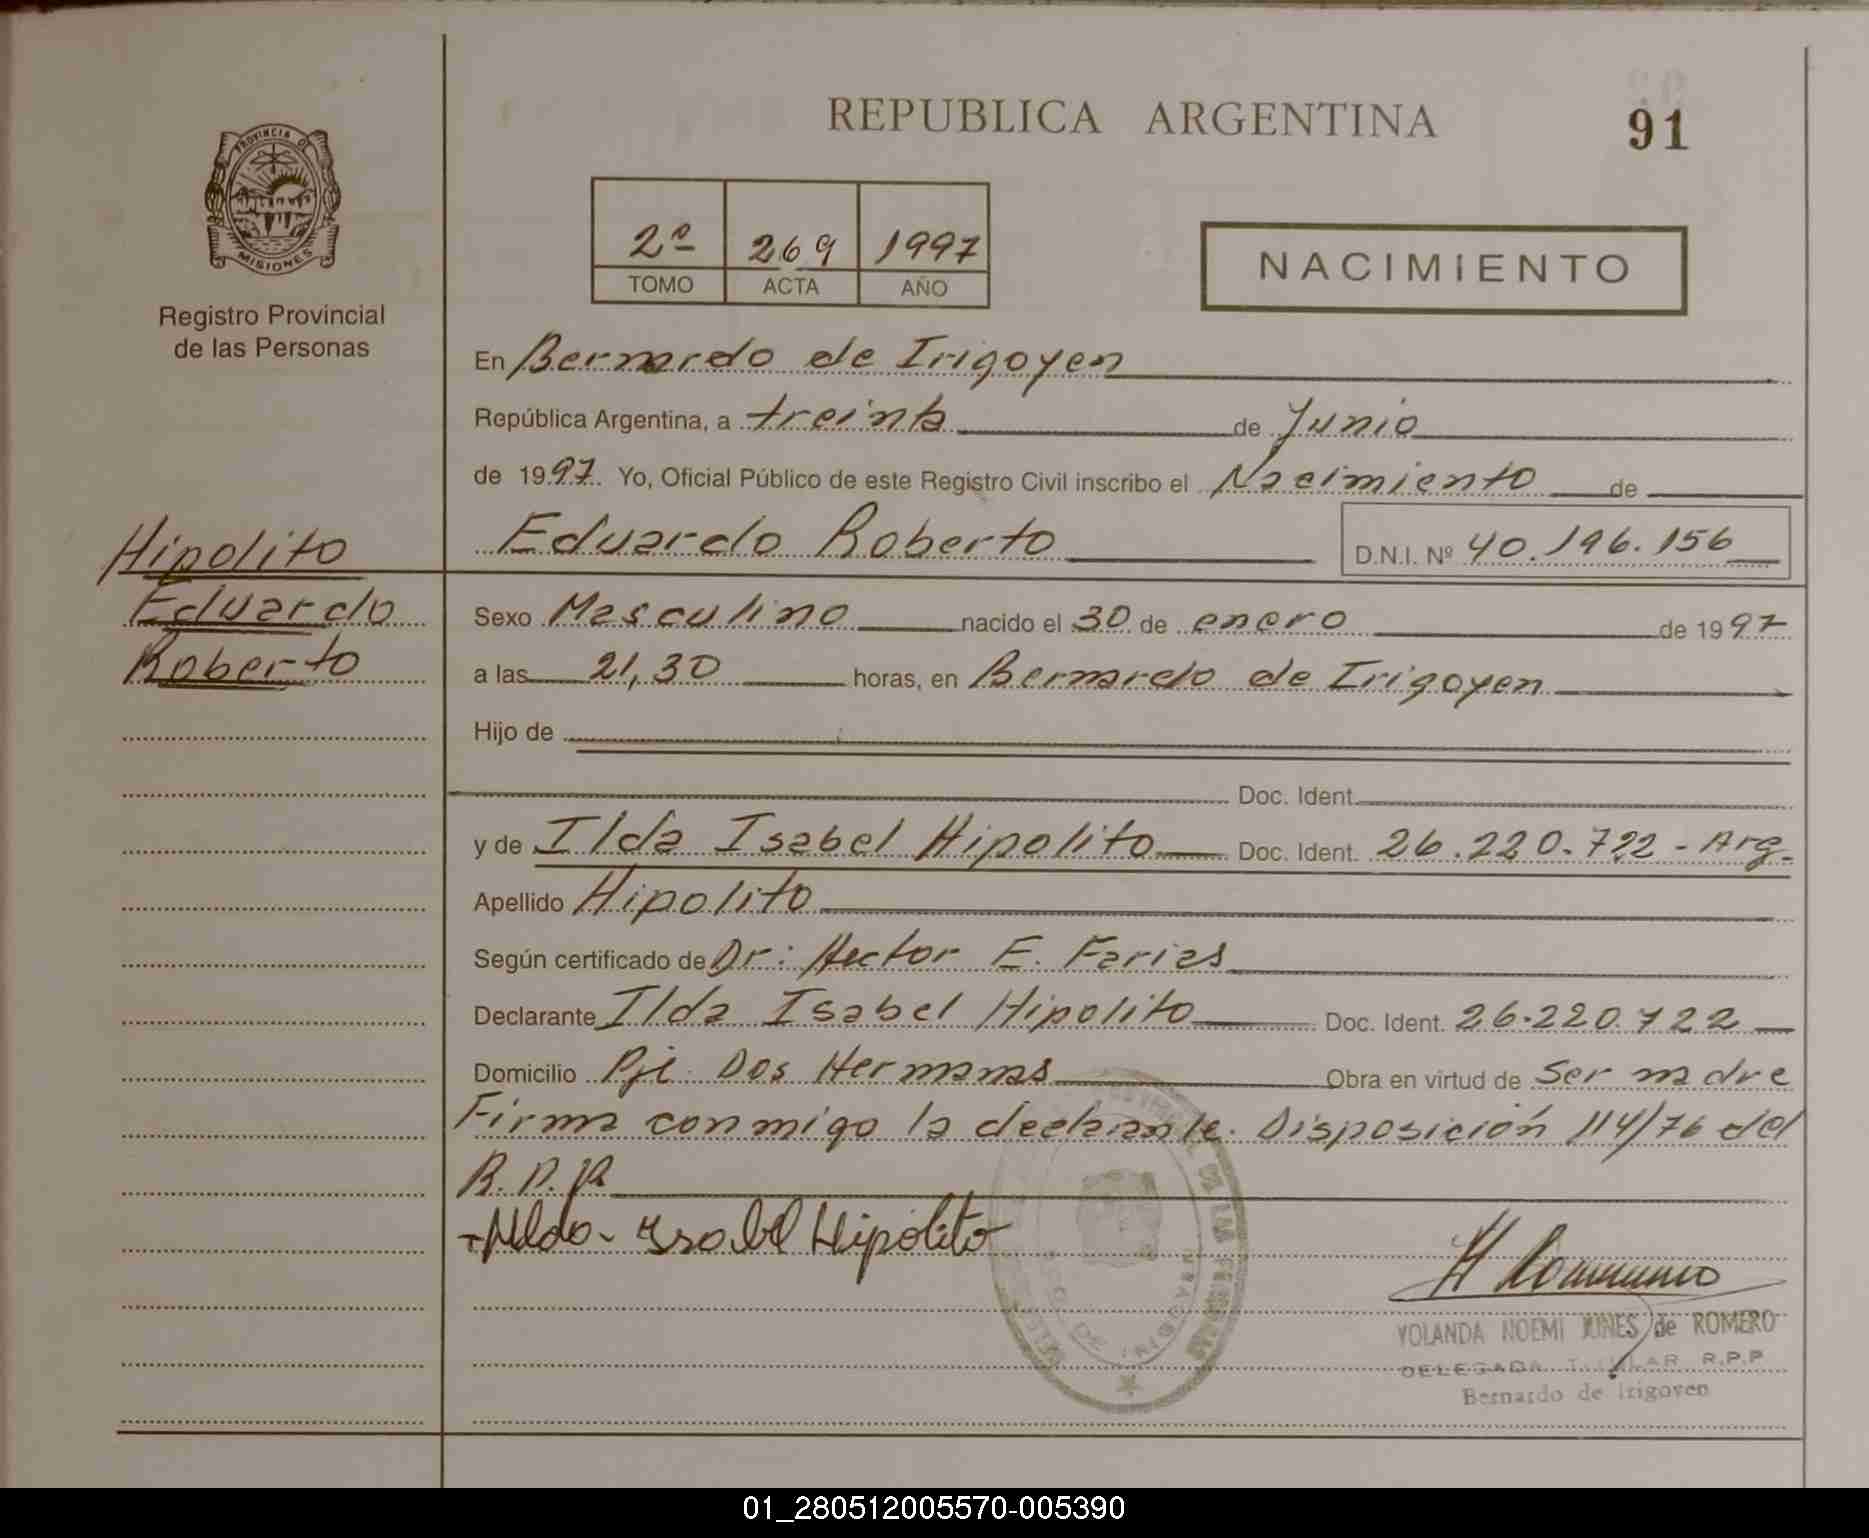 REPUBLICA ARGENTINA
91
PROVINCIA DE
MISIONES
Registro Provincial
de las Personas
2º 269 1997
TOMO ACTA AÑO
NACIMIENTO
En Bernardo de Irigoyen
República Argentina, a treinta de Junio
de 1997. Yo, Oficial Público de este Registro Civil inscribo el Nacimiento de
Hipolito
Eduardo
Roberto
Eduardo Roberto D.N.I. Nº 40.196.156
Sexo Masculino nacido el 30 de enero de 1997
a las 21,30 horas, en Bernardo de Irigoyen
Hijo de
Doc. Ident.
y de Ilda Isabel Hipolito Doc. Ident. 26.220.722 - Arg.
Apellido Hipolito
Según certificado de Dr: Hector E. Farias
Declarante Ilda Isabel Hipolito Doc. Ident. 26.220.722
Domicilio Pje. Dos Hermanas Obra en virtud de Ser madre
Firma conmigo la declarante. Disposición 114/76 del
R.P.P.
Ilda Isabel Hipólito
YOLANDA NOEMI de ROMERO
DELEGADA TITULAR R.P.P
Bernardo de Irigoyen
01_280512005570-005390